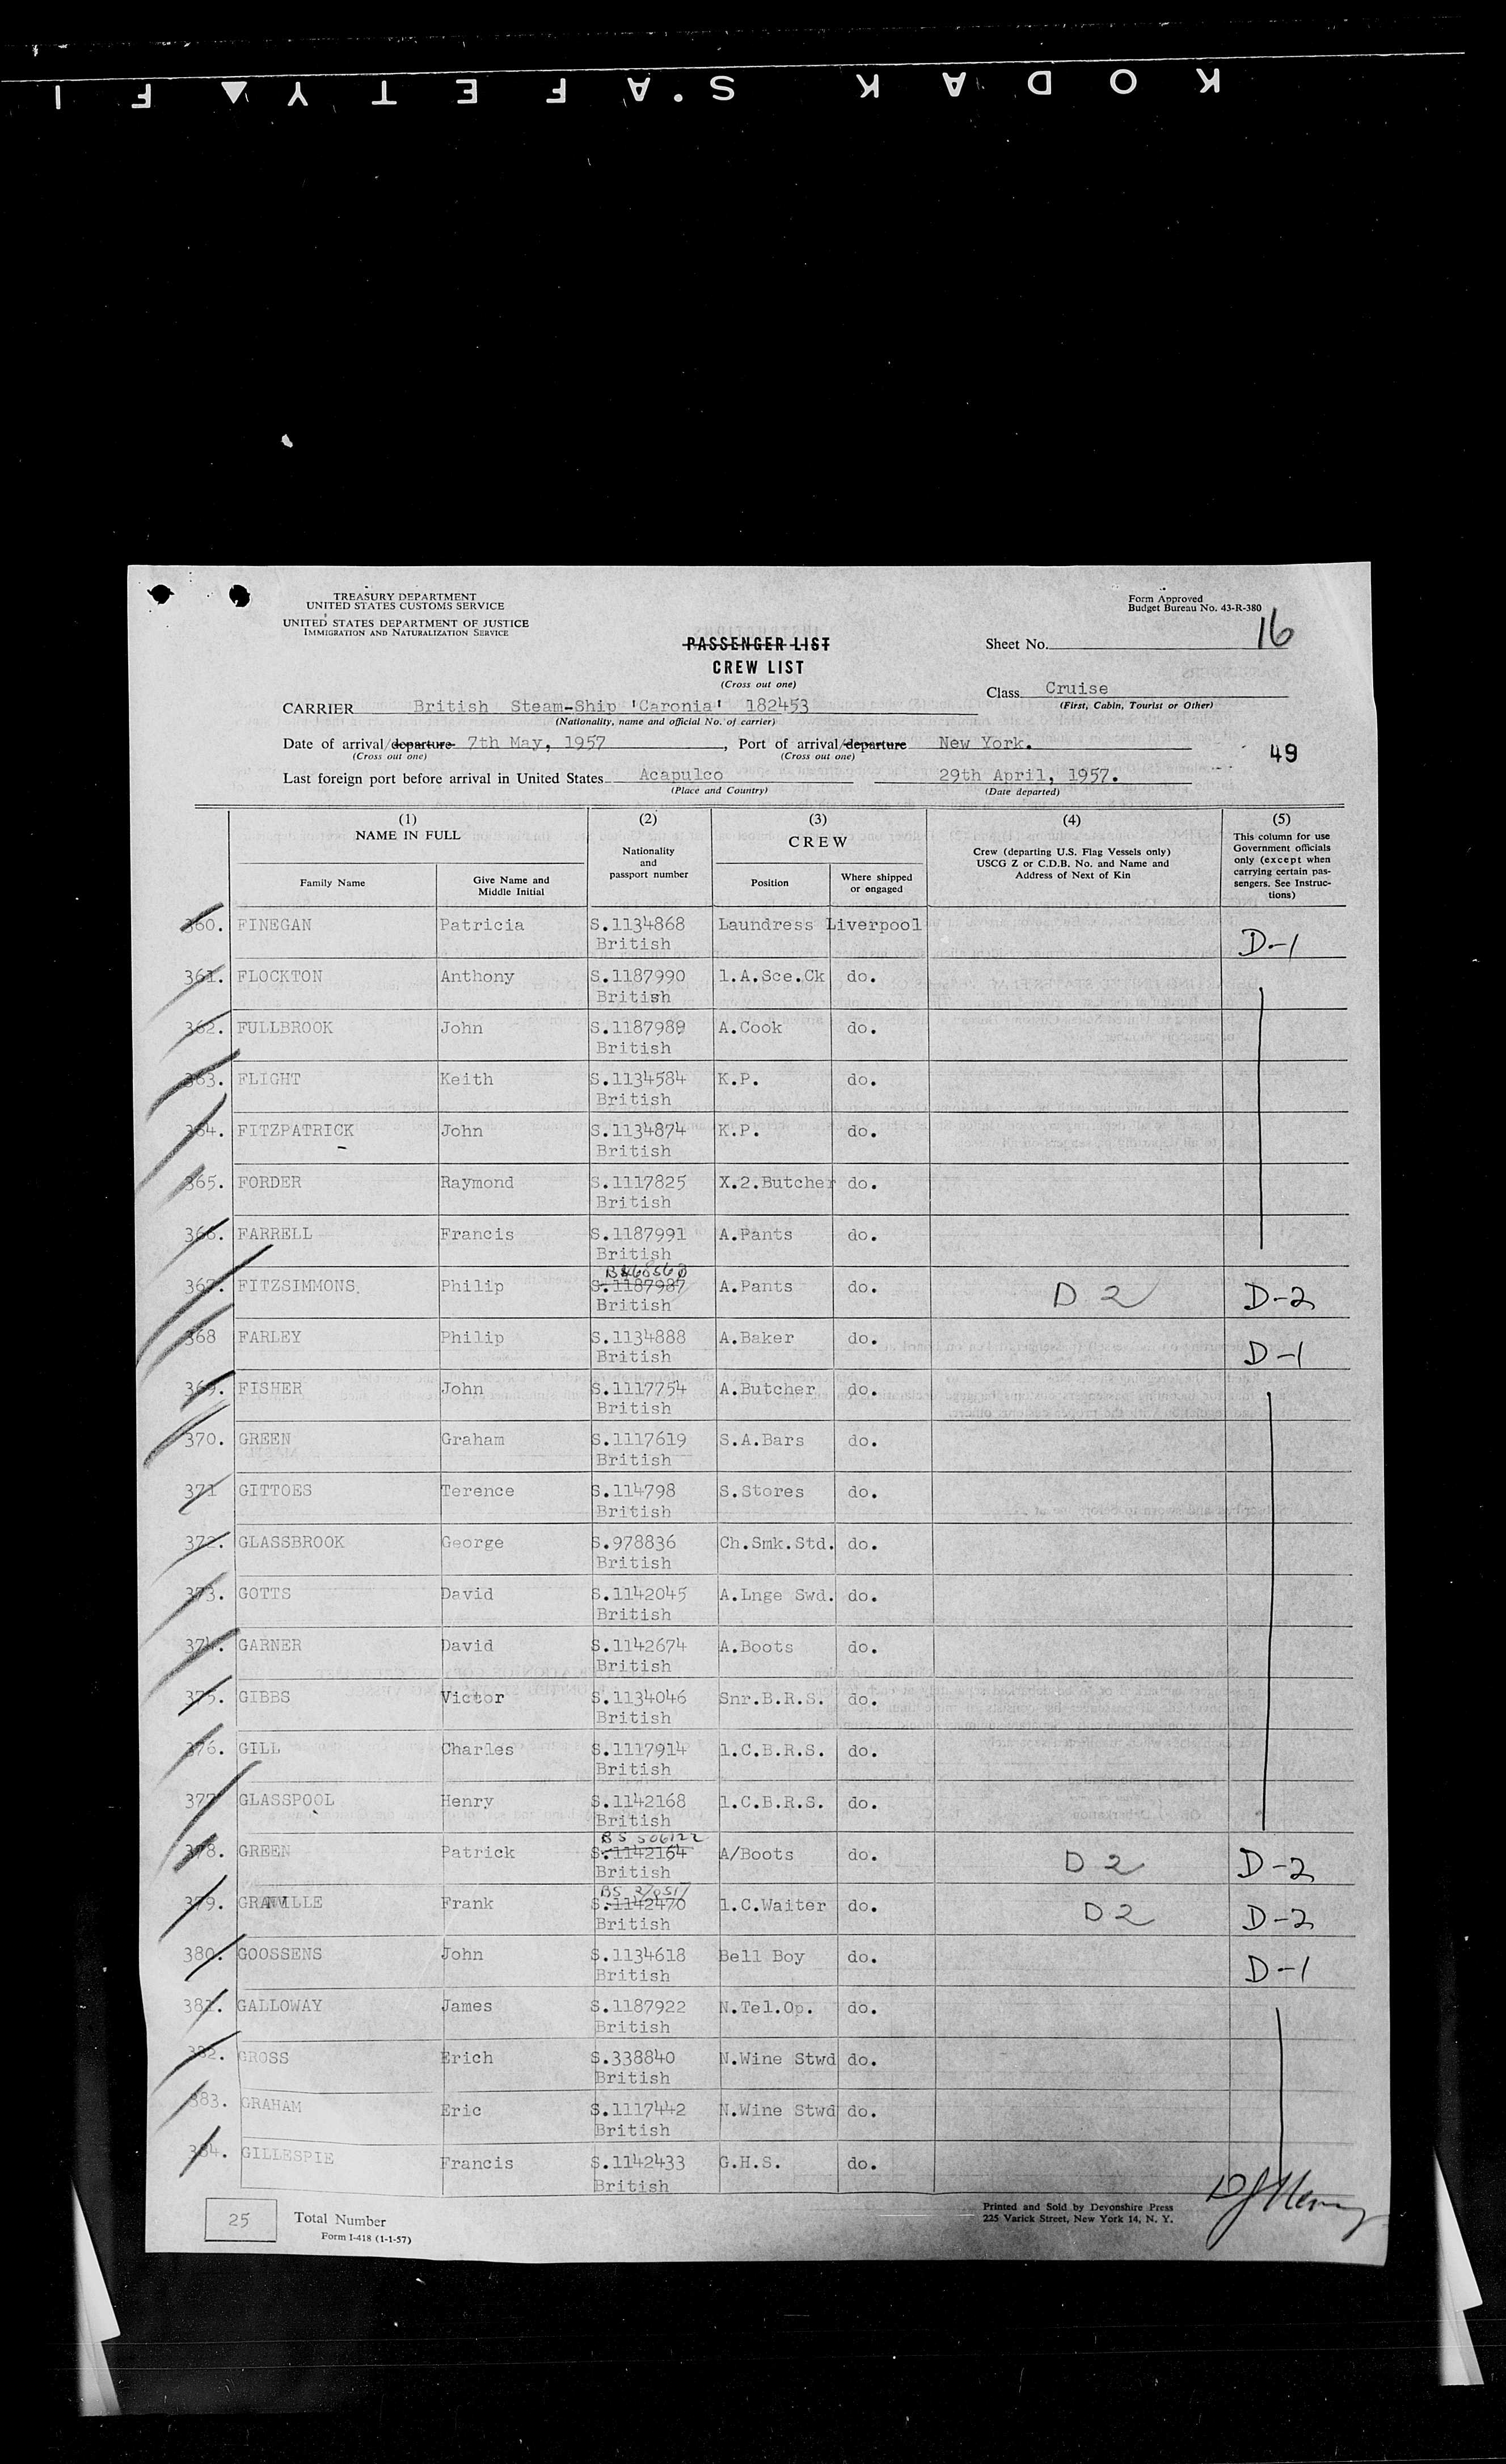 KODAK S.AFETY▲FI
TREASURY DEPARTMENT
UNITED STATES CUSTOMS SERVICE
UNITED STATES DEPARTMENT OF JUSTICE
IMMIGRATION AND NATURALIZATION SERVICE
Form Approved
Budget Bureau No. 43-R-380
PASSENGER LIST
CREW LIST
(Cross out one)
Sheet No. 16
Class Cruise
(First, Cabin, Tourist or Other)
CARRIER British Steam-Ship 'Caronia' 182453
(Nationality, name and official No. of carrier)
Date of arrival/departure 7th May, 1957, Port of arrival/departure New York.
(Cross out one) (Cross out one)
49
Last foreign port before arrival in United States Acapulco 29th April, 1957.
(Place and Country) (Date departed)
(1) NAME IN FULL
Family Name
Give Name and Middle Initial
(2) Nationality and passport number
(3) CREW
Position
Where shipped or engaged
(4) Crew (departing U.S. Flag Vessels only) USCG Z or C.D.B. No. and Name and Address of Next of Kin
(5) This column for use Government officials only (except when carrying certain passengers. See Instructions)
360. FINEGAN Patricia S.1134868 Laundress Liverpool
British D-1
361. FLOCKTON Anthony S.1187990 1.A.Sce.Ck do.
British
362. FULLBROOK John S.1187989 A.Cook do.
British
363. FLIGHT Keith S.1134584 K.P. do.
British
364. FITZPATRICK John S.1134874 K.P. do.
British
365. FORDER Raymond S.1117825 X.2.Butcher do.
British
366. FARRELL Francis S.1187991 A.Pants do.
British
367. FITZSIMMONS. Philip S.1187987 A.Pants do. D 2 D-2
British
368 FARLEY Philip S.1134888 A.Baker do.
British D-1
369. FISHER John S.1117754 A.Butcher do.
British
370. GREEN Graham S.1117619 S.A.Bars do.
British
371 GITTOES Terence S.114798 S.Stores do.
British
372. GLASSBROOK George S.978836 Ch.Smk.Std. do.
British
373. GOTTS David S.1142045 A.Lnge Swd. do.
British
374. GARNER David S.1142674 A.Boots do.
British
375. GIBBS Victor S.1134046 Snr.B.R.S. do.
British
376. GILL Charles S.1117914 1.C.B.R.S. do.
British
377 GLASSPOOL Henry S.1142168 1.C.B.R.S. do.
British
BS 506122
378. GREEN Patrick S.1142164 A/Boots do. D 2 D-2
British
379. GRANVILLE Frank S.1142470 1.C.Waiter do. D 2 D-2
British
380. GOOSSENS John S.1134618 Bell Boy do.
British D-1
381. GALLOWAY James S.1187922 N.Tel.Op. do.
British
382. GROSS Erich S.338840 N.Wine Stwd do.
British
383. GRAHAM Eric S.1117442 N.Wine Stwd do.
British
384. GILLESPIE Francis S.1142433 G.H.S. do.
British
25 Total Number
Form I-418 (1-1-57)
Printed and Sold by Devonshire Press
225 Varick Street, New York 14, N. Y.